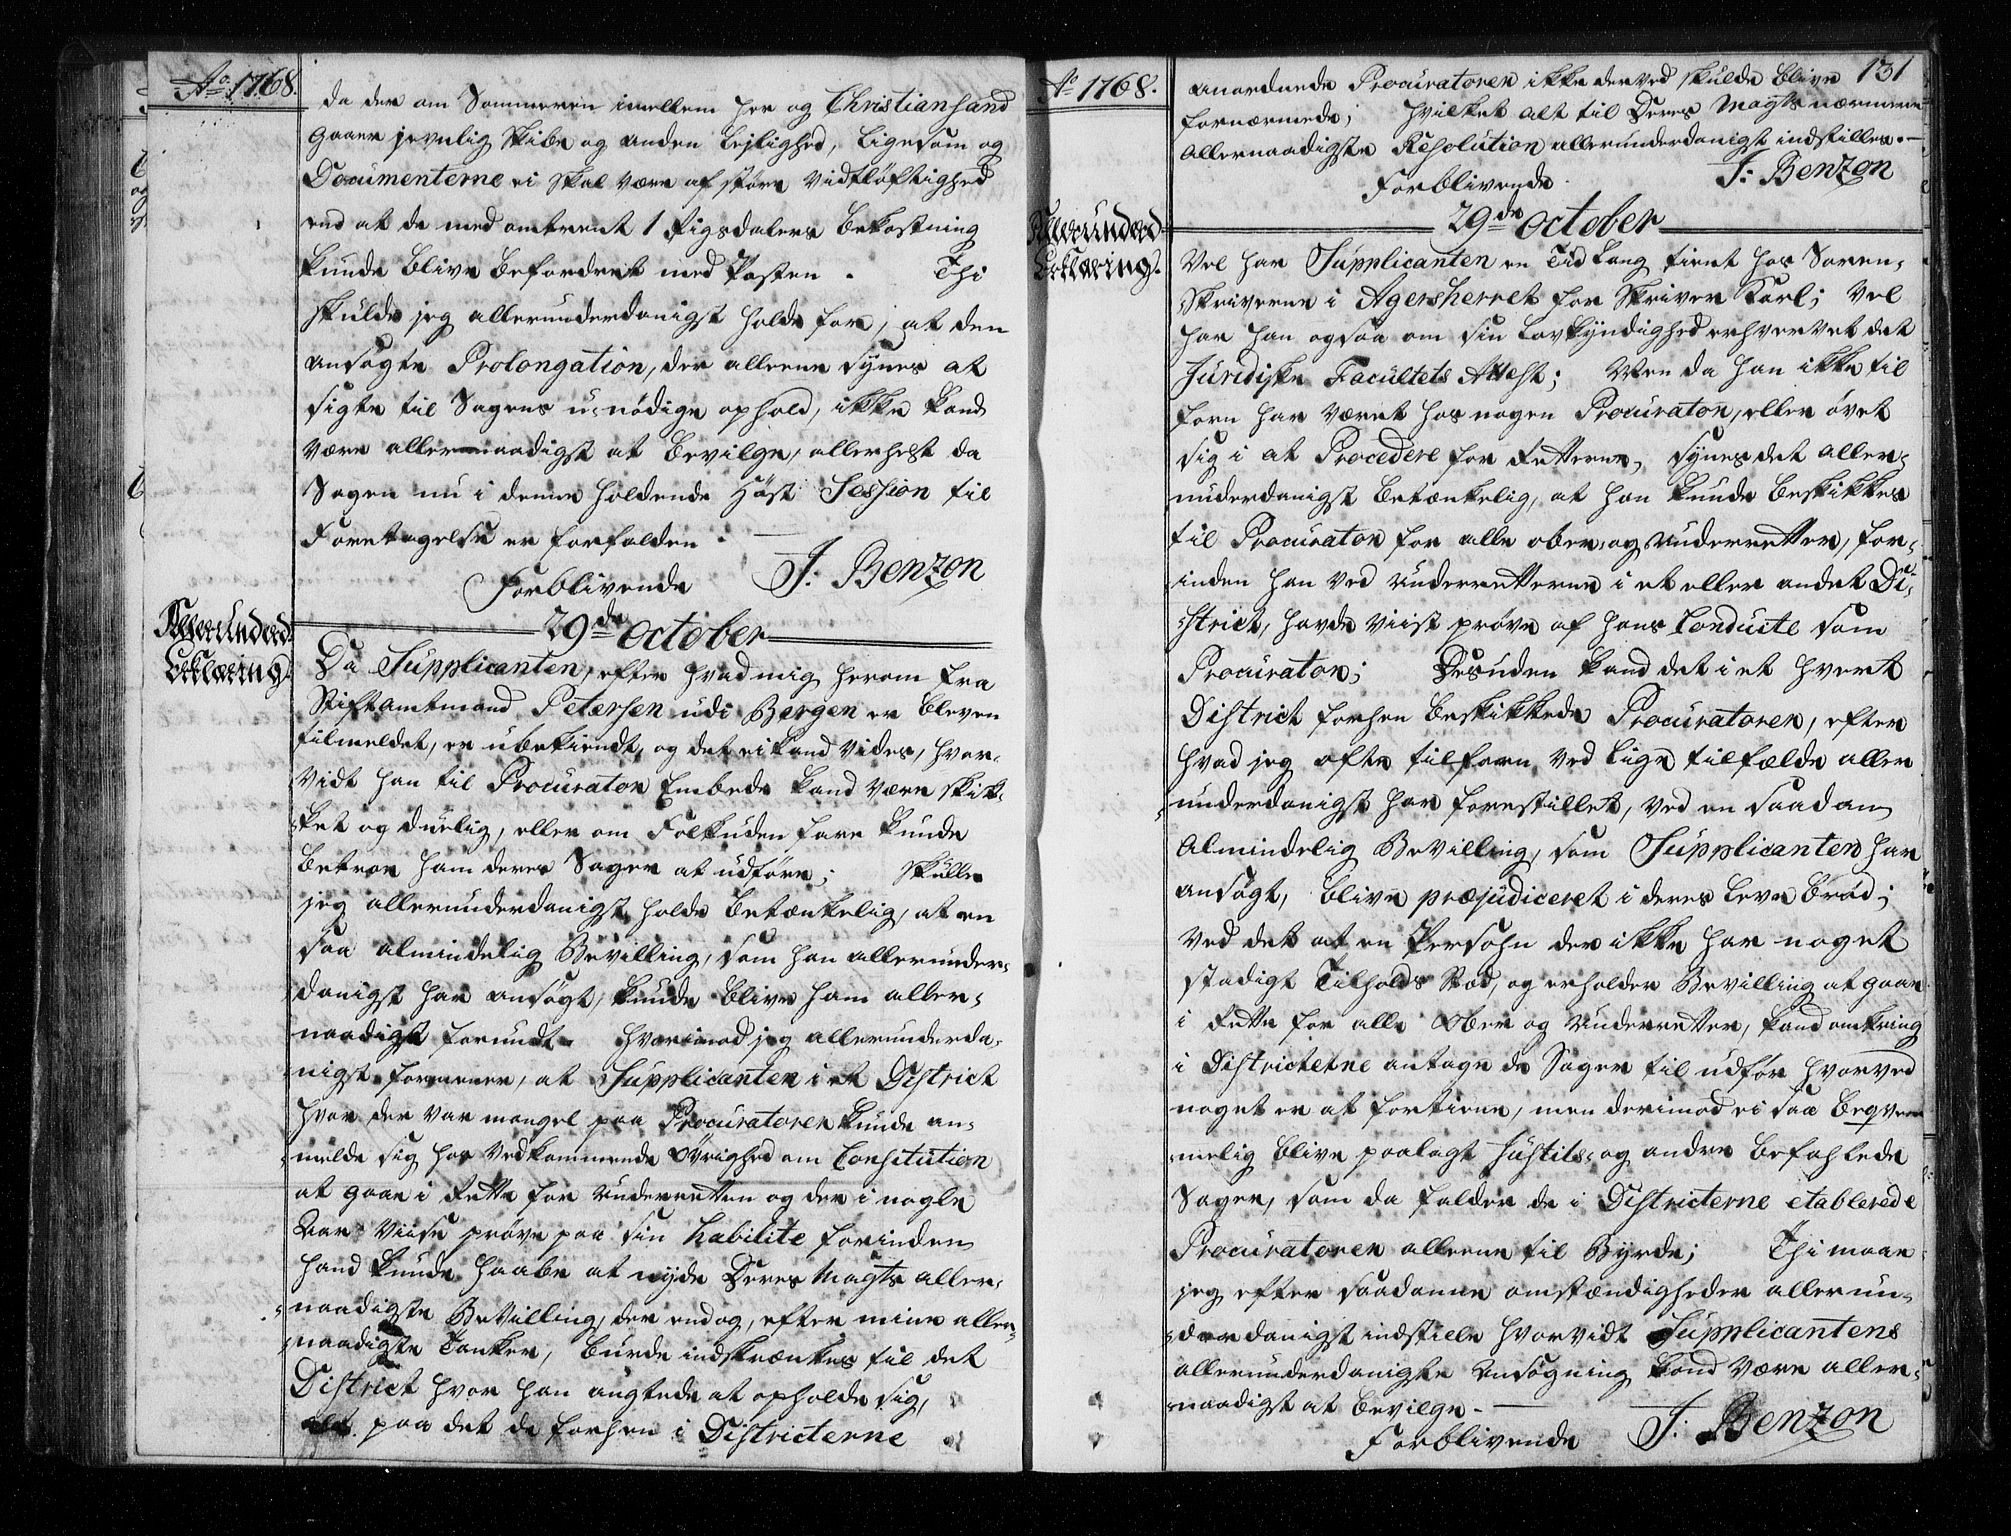 Ao. 1768.
da der om Sommeren imellem her og Christiansand
gaaer jevnlig Skibe og anden Lejlighed, ligesom og
Documenterne ei skal være af større vidtløftighed
end at de med omtrent 1 Rigsdalers bekostning
kunde blive befordret med Posten. Thi
skulde jeg allerunderdanigst holde for, at den
ansøgte Prolongation, der alleene synes at
sigte til Sagens u-nödige ophold, ikke kand
være allernaadigst at bevilge, allerhelst da
Sagen nu i denne holdende Höst Session til
Foretagelse er forfalden.
Forblivende J: Benzon
29de October
Allerunderd:
Erklæring.
Da Supplicanten, efter hvad mig herom fra
Stiftamtmand Petersen udi Bergen er bleven
tilmeldet, er ubekiendt, og det ei kand vides, hvor-
vidt han til Procurator Embede kand være skik-
ket og duelig, eller om Folk uden fare kunde
betroe ham deres Sager at udføre; Skulle
jeg allerunderdanigst holde betænkelig, at en
saa almindelig Bevilling, som han allerunder-
danigst har ansøgt, kunde blive ham aller-
naadigst forundt. Hvorimod jeg allerunderda-
nigst formener, at Supplicanten i et District
hvor der var mangel paa Procuratorer kunde an-
melde sig hos vedkommende Øvrighed om Constitution
at gaae i Rette for Underretten og der i nogle
Aar viise prøve paa sin habilite forinden
hand kunde haabe at nyde Deres Mayts aller-
naadigste Bevilling, der endog, efter mine aller-
naadigste Tanker, burde indskrænkes til det
District hvor han agtede at opholde sig,
alt paa det de forhen i Districterne
Ao 1768.
131
anordnede Procuratorer ikke derved skulde blive
fornærmede; hvilket alt til Deres Mayts nærmere
Allernaadigste Resolution allerunderdanigst indstilles.
Forblivende J: Benzon
29de October
Allerunderd:
Erklæring.
Vel har Supplicanten en Tid lang tient hos Soren-
skriverne i Agersherret for Skriver Karl; Vel
har han ogsaa om sin Lovkyndighed erhvervet det
Juridiske Facultets Attest; Men da han ikke til
forn har været hos nogen Procurator, eller øvet
sig i at Procedere for Retterne, synes det aller-
underdanigst betænkelig, at han kunde beskikkes
til Procurator for alle ober- og underretter, for-
inden han ved Underretterne i et eller andet Di-
strict, havde viist prøve af hans Conduite som
Procurator; Desuden kand det i et hvert
District forhen beskikkede Procuratorer, efter
hvad jeg ofte tilforn ved lige tilfælde aller
underdanigst har forestillet, ved en saadan
Almindelig Bevilling, som Supplicanten har
ansøgt, blive præjudiceret i deres leve brød;
ved det at en Persohn der ikke har noget
stadigt Tilholds Stæd, og erholder Bevilling at gaae
i Rette for alle Ober og Underretter, kand omkring
i Districterne antage de Sager til udfør hvorved
noget er at fortiene, men derimod ei saa beqvem-
melig blive paalagt Justits- og andre befahlede
Sager, som da falder de i Districterne etablerede
Procuratorer alleene til Byrde; Thi maae
jeg efter saadanne omstændigheder allerun-
derdanigst indstille hvorvidt Supplicantens
allerunderdanigste Ansøgning kand være aller-
naadigst at bevilge.
Forblivende J: Benzon